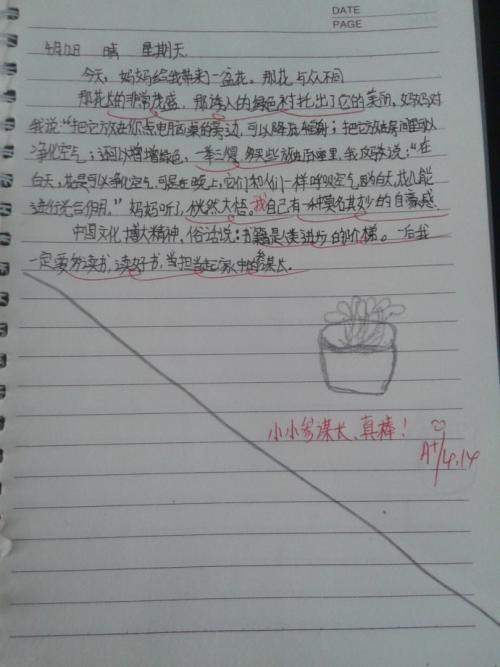 DATE
PAGE
4月12日 晴 星期天
今天，妈妈给我带来一盆花。那花与众不同
那花长的非常茂盛，那诱人的绿色衬托出了它的美丽，妈妈对
我说“把它放在你点电脑桌的旁边，可以降低辐射；把它放在房间里可以
净化空气；还可以增增绿色，一举三得
我反驳说：“在
白天，花是可以净化空气，可是在晚上，它们和们一样呼吸空气
进行光合作用。”妈妈听了，恍然大悟。我自己有一种莫名其妙的自豪感
中国文化博大精神，俗话说：书籍是人类进步的价梯。一后我
一定要多读书，读好书，当担当起家中的参谋长。
小小参谋长、真棒！
A+/4.14